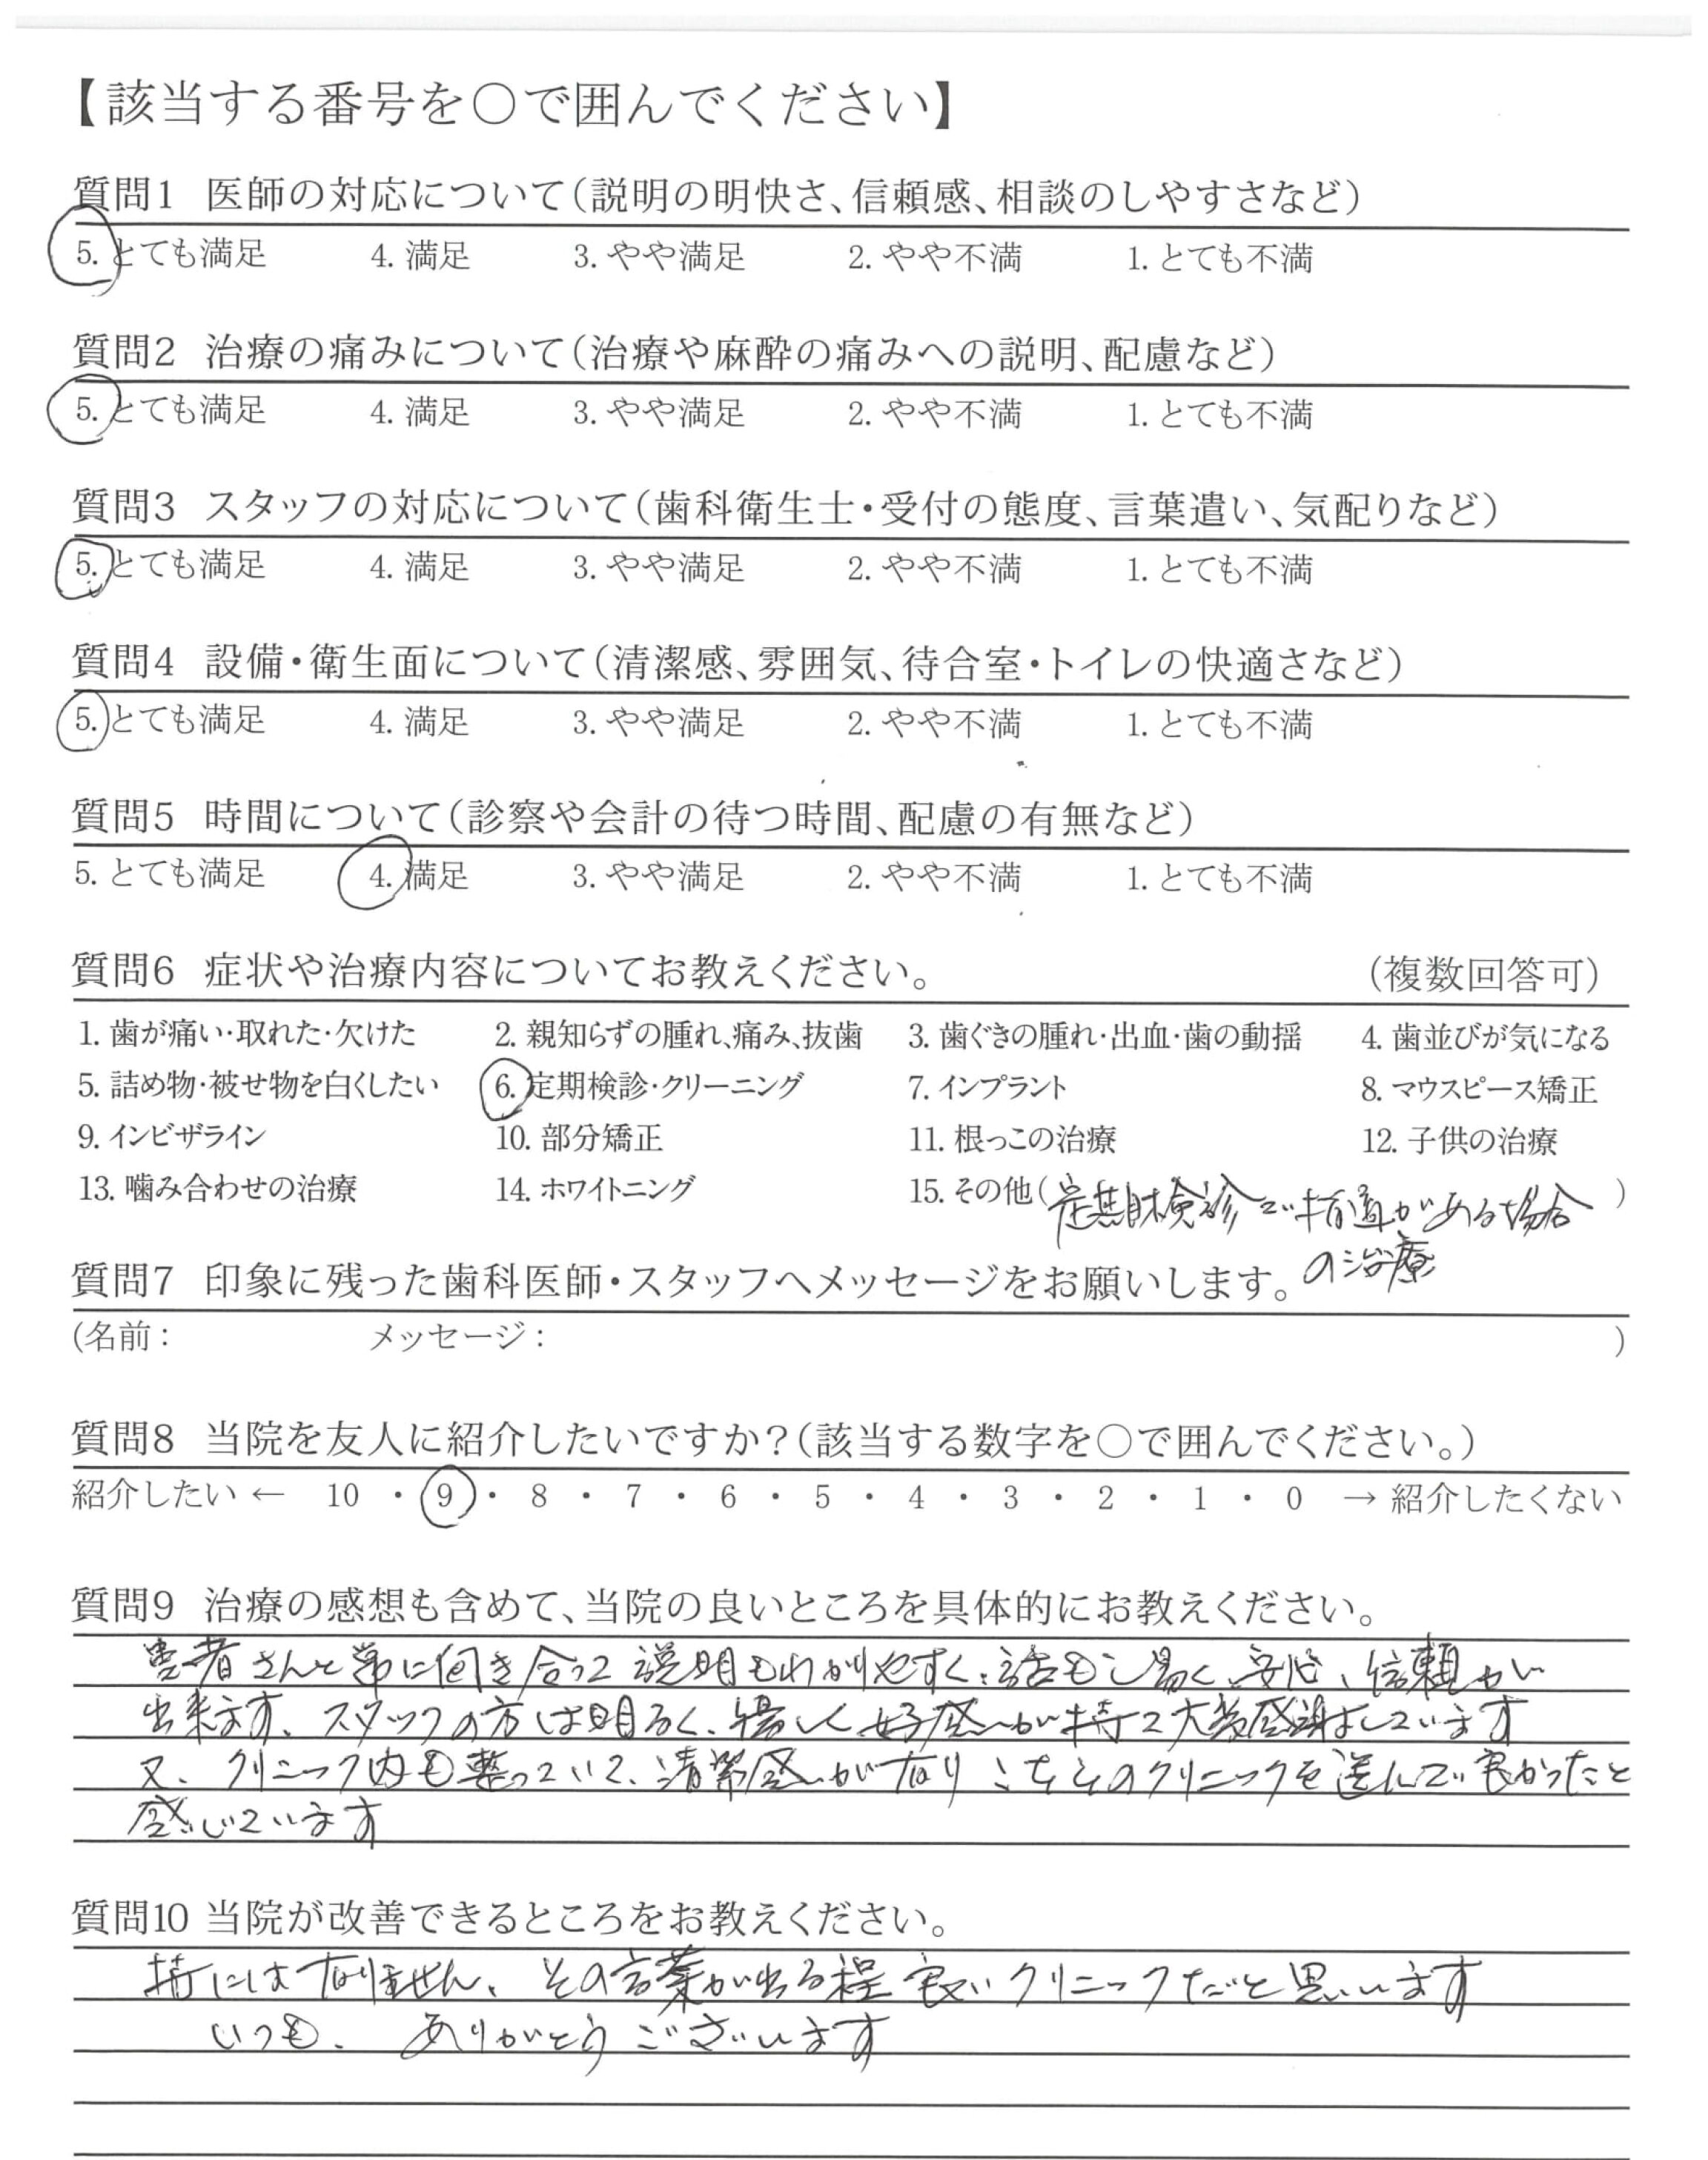 【該当する番号を○で囲んでください】
質問1 医師の対応について(説明の明快さ、信頼感、相談のしやすさなど)
5. とても満足 4. 満足 3. やや満足 2. やや不満 1. とても不満
質問2 治療の痛みについて(治療や麻酔の痛みへの説明、配慮など)
5. とても満足 4. 満足 3. やや満足 2. やや不満 1. とても不満
質問3 スタッフの対応について(歯科衛生士・受付の態度、言葉遣い、気配りなど)
5. とても満足 4. 満足 3. やや満足 2. やや不満 1. とても不満
質問4 設備・衛生面について(清潔感、雰囲気、待合室・トイレの快適さなど)
5. とても満足 4. 満足 3. やや満足 2. やや不満 1. とても不満
質問5 時間について(診察や会計の待つ時間、配慮の有無など)
5. とても満足 4. 満足 3. やや満足 2. やや不満 1. とても不満
質問6 症状や治療内容についてお教えください。 (複数回答可)
1. 歯が痛い・取れた・欠けた 2. 親知らずの腫れ、痛み、抜歯 3. 歯ぐきの腫れ・出血・歯の動揺 4. 歯並びが気になる
5. 詰め物・被せ物を白くしたい 6. 定期検診・クリーニング 7. インプラント 8. マウスピース矯正
9. インビザライン 10. 部分矯正 11. 根っこの治療 12. 子供の治療
13. 噛み合わせの治療 14. ホワイトニング 15. その他(定期検診で指導がある場合)
の治療
質問7 印象に残った歯科医師・スタッフへメッセージをお願いします。
(名前: メッセージ: )
質問8 当院を友人に紹介したいですか?(該当する数字を○で囲んでください。)
紹介したい ← 10 ・ 9 ・ 8 ・ 7 ・ 6 ・ 5 ・ 4 ・ 3 ・ 2 ・ 1 ・ 0 → 紹介したくない
質問9 治療の感想も含めて、当院の良いところを具体的にお教えください。
患者さんと常に向き合って説明もわかりやすく、話もし易く、安心、信頼が
出来ます、スタッフの方は明るく、優しく好感が持て大変感謝しています
又、クリニック内も整っていて、清潔感が有り こちらのクリニックを選んで良かったと
感じています
質問10 当院が改善できるところをお教えください。
特には有りません、その言葉が出る程 良いクリニックだと思います
いつも、ありがとうございます